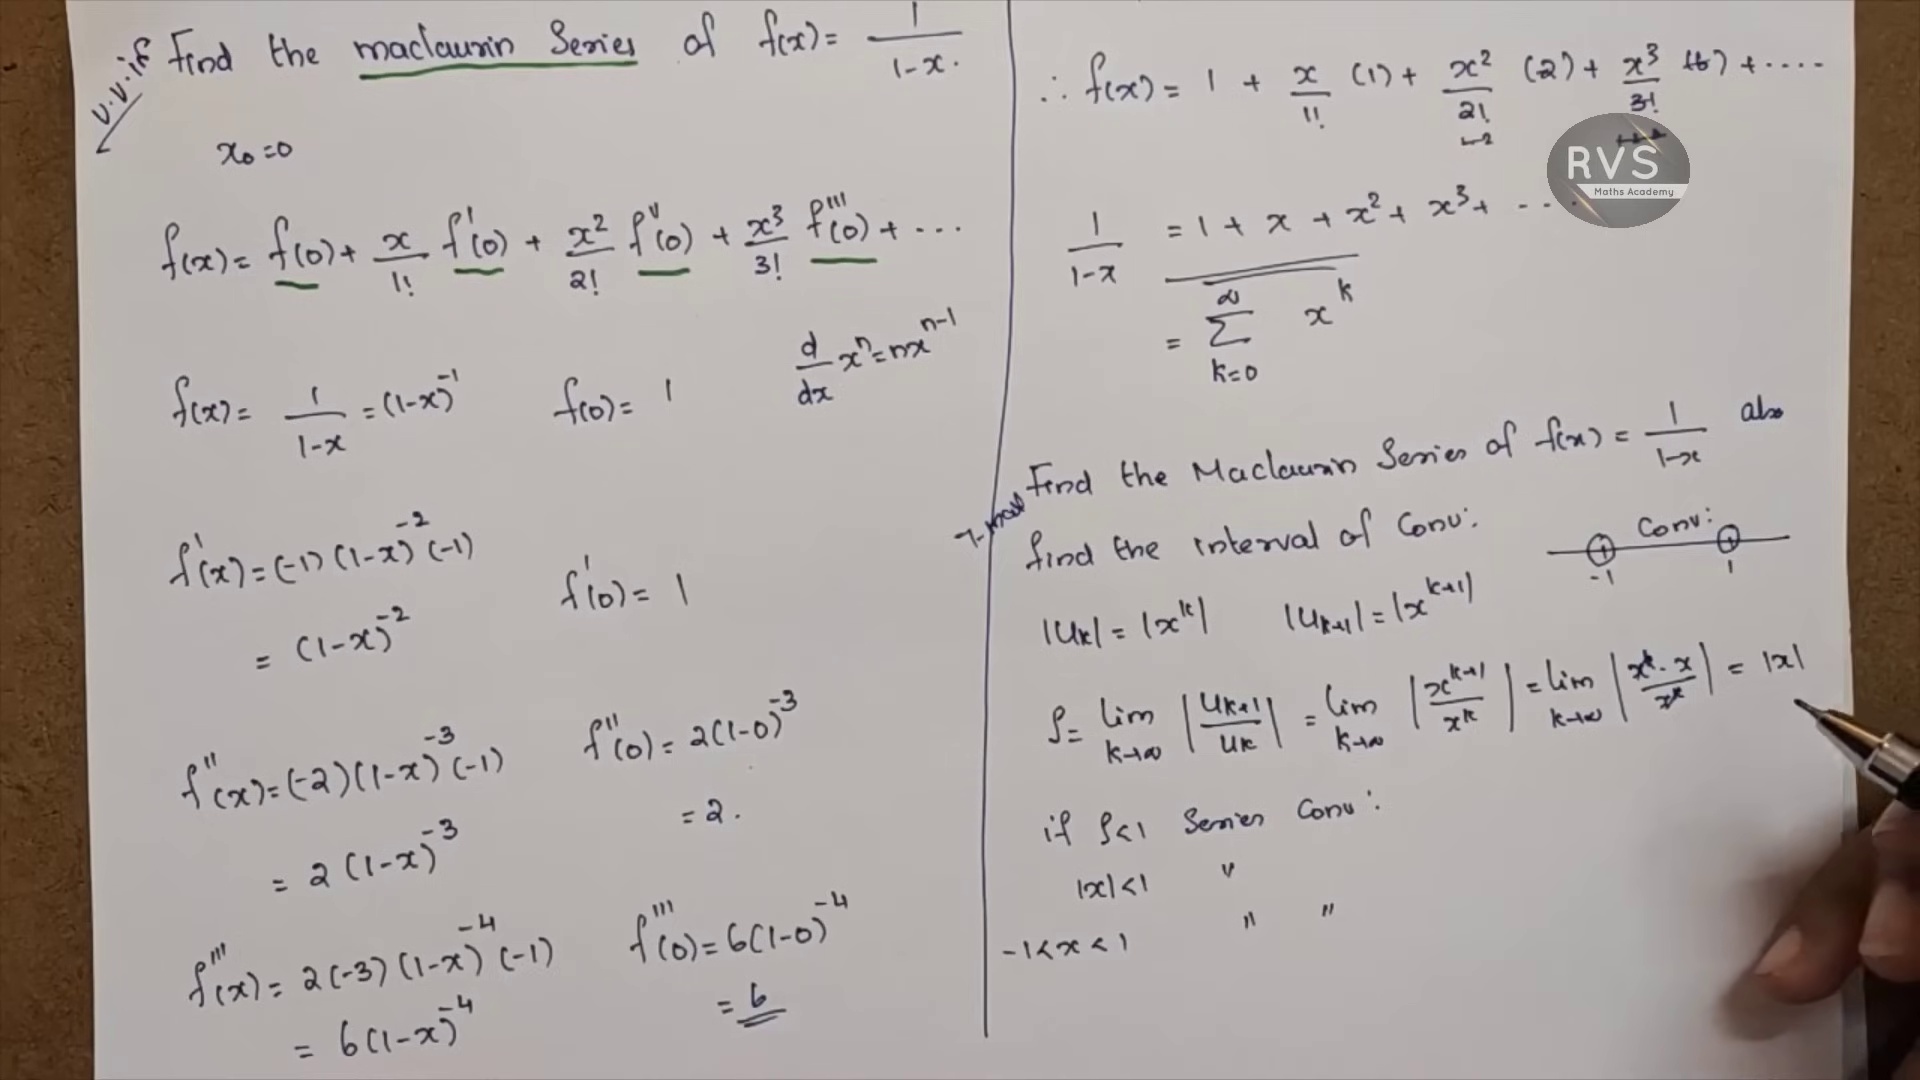 v.v.if Find the maclaurin Series of f(x) = 1/(1-x).
x₀ = 0
f(x) = f(0) + x/1! f'(0) + x²/2! f''(0) + x³/3! f'''(0) + ...
d/dx xⁿ = nxⁿ⁻¹
f(x) = 1/(1-x) = (1-x)⁻¹ f(0) = 1
f'(x) = (-1)(1-x)⁻²(-1) f'(0) = 1
= (1-x)⁻²
f''(x) = (-2)(1-x)⁻³(-1) f''(0) = 2(1-0)⁻³
= 2.
= 2(1-x)⁻³
f'''(x) = 2(-3)(1-x)⁻⁴(-1) f'''(0) = 6(1-0)⁻⁴
= 6
= 6(1-x)⁻⁴
∴ f(x) = 1 + x/1! (1) + x²/2! (2) + x³/3! (6) + ....
RVS
Maths Academy
1/(1-x) = 1 + x + x² + x³ + ...
= ∞ Σ k=0 xᵏ
Find the Maclaurin Series of f(x) = 1/(1-x) also
find the interval of Conv:
Conv:
-1 1
|Uk| = |xᵏ| |Uk+1| = |xᵏ⁺¹|
ρ = lim k→∞ |Uk+1/Uk| = lim k→∞ |xᵏ⁺¹/xᵏ| = lim k→∞ |xᵏ·x/xᵏ| = |x|
if ρ<1 Series Conv:
|x|<1 "
-1<x<1 " "